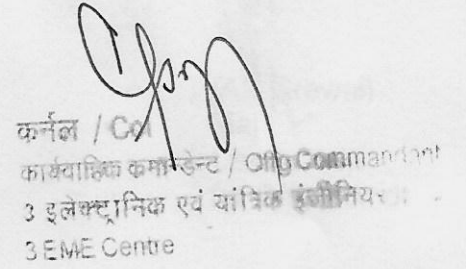 कर्नल / Col
कार्यवाहिक कमान्डेन्ट / Offg Commandant
3 इलेक्ट्रानिक एवं यांत्रिक इंजीनियर
3 EME Centre